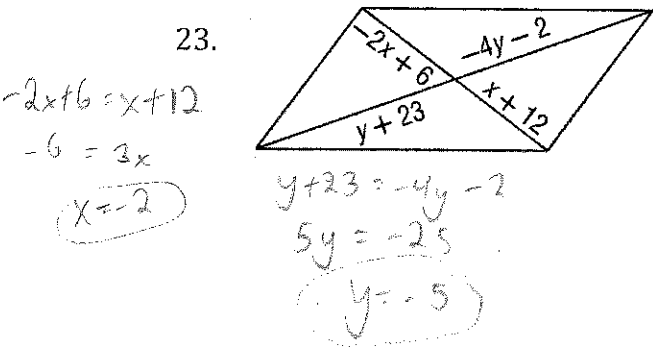 23.
-2x + 6
-4y - 2
y + 23
x + 12
-2x+6=x+12
-6 = 3x
x=-2
y+23=-4y-2
5y = -25
y=-5